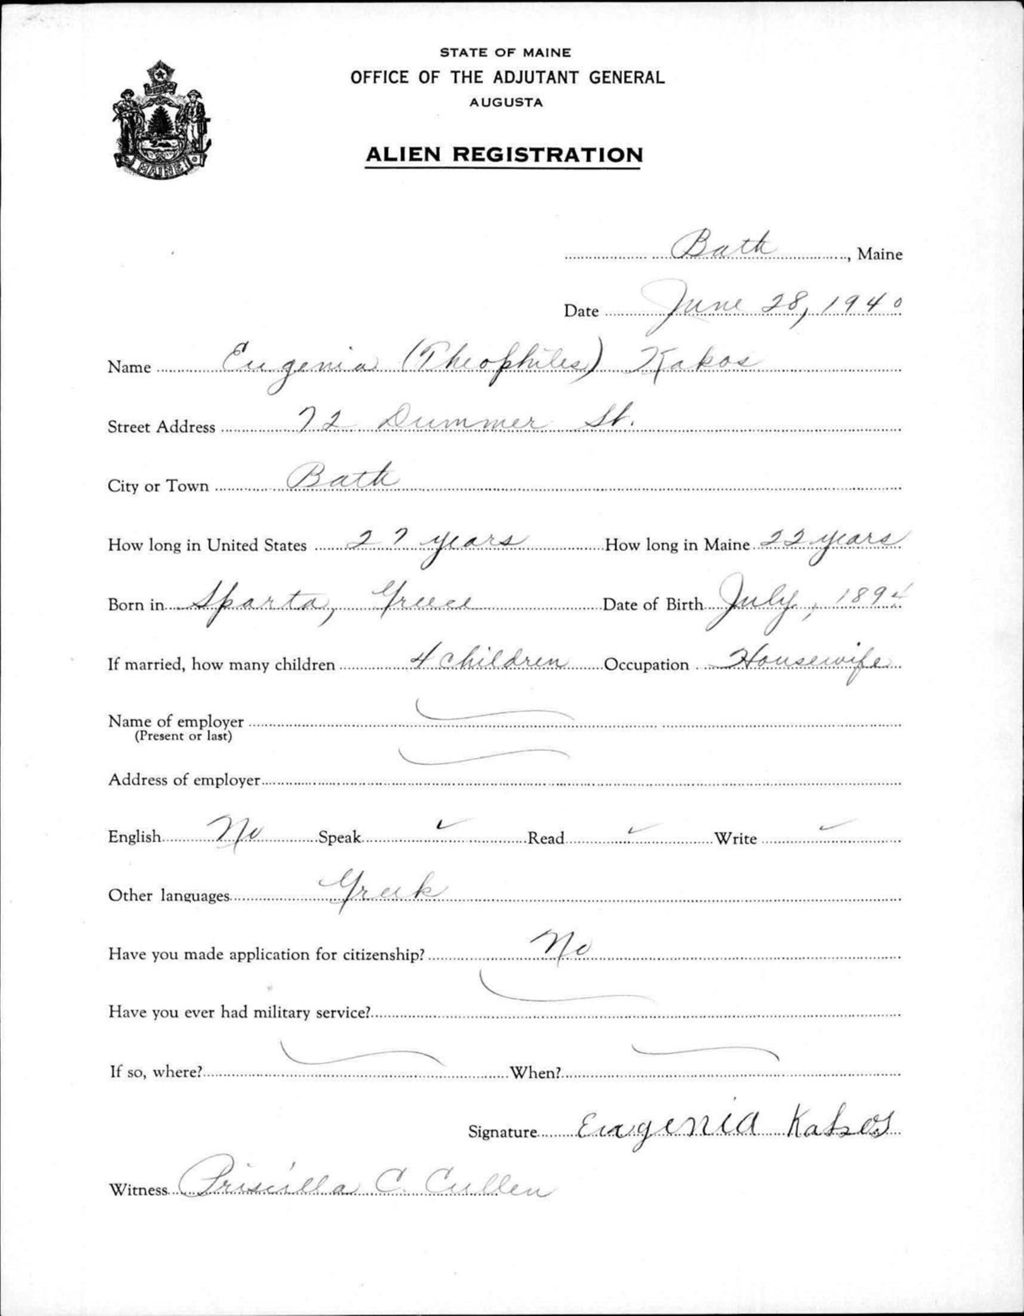 STATE OF MAINE
OFFICE OF THE ADJUTANT GENERAL
AUGUSTA
ALIEN REGISTRATION
MAINE
Bath, Maine
Date June 28, 1940
Name Eugenia (Theophiles) Kakos
Street Address 72 Dummer St.
City or Town Bath
How long in United States 27 years How long in Maine 22 years
Born in Sparta, Greece Date of Birth July, 1894
If married, how many children 4 children Occupation Housewife
Name of employer
(Present or last)
Address of employer
English No Speak Read Write
Other languages Greek
Have you made application for citizenship? No
Have you ever had military service?
If so, where? When?
Signature Eugenia Kakos
Witness Priscilla C. Cullen